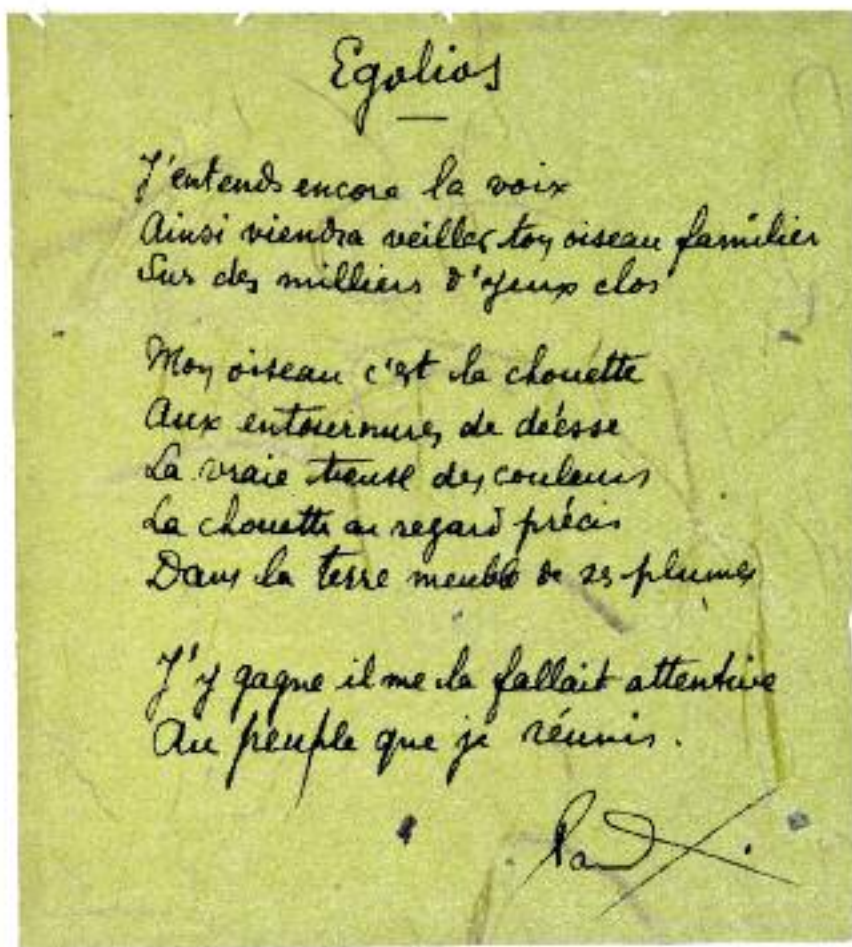 Egolios
J'entends encore la voix
Ainsi viendra veiller ton oiseau familier
Sur des milliers d'yeux clos
Mon oiseau c'est la chouette
Aux entournures de déesse
La vraie des couleurs
La chouette au regard précis
Dans la terre meuble de ses plumes
J'y gagne il me la fallait attentive
Au peuple que je réunis.